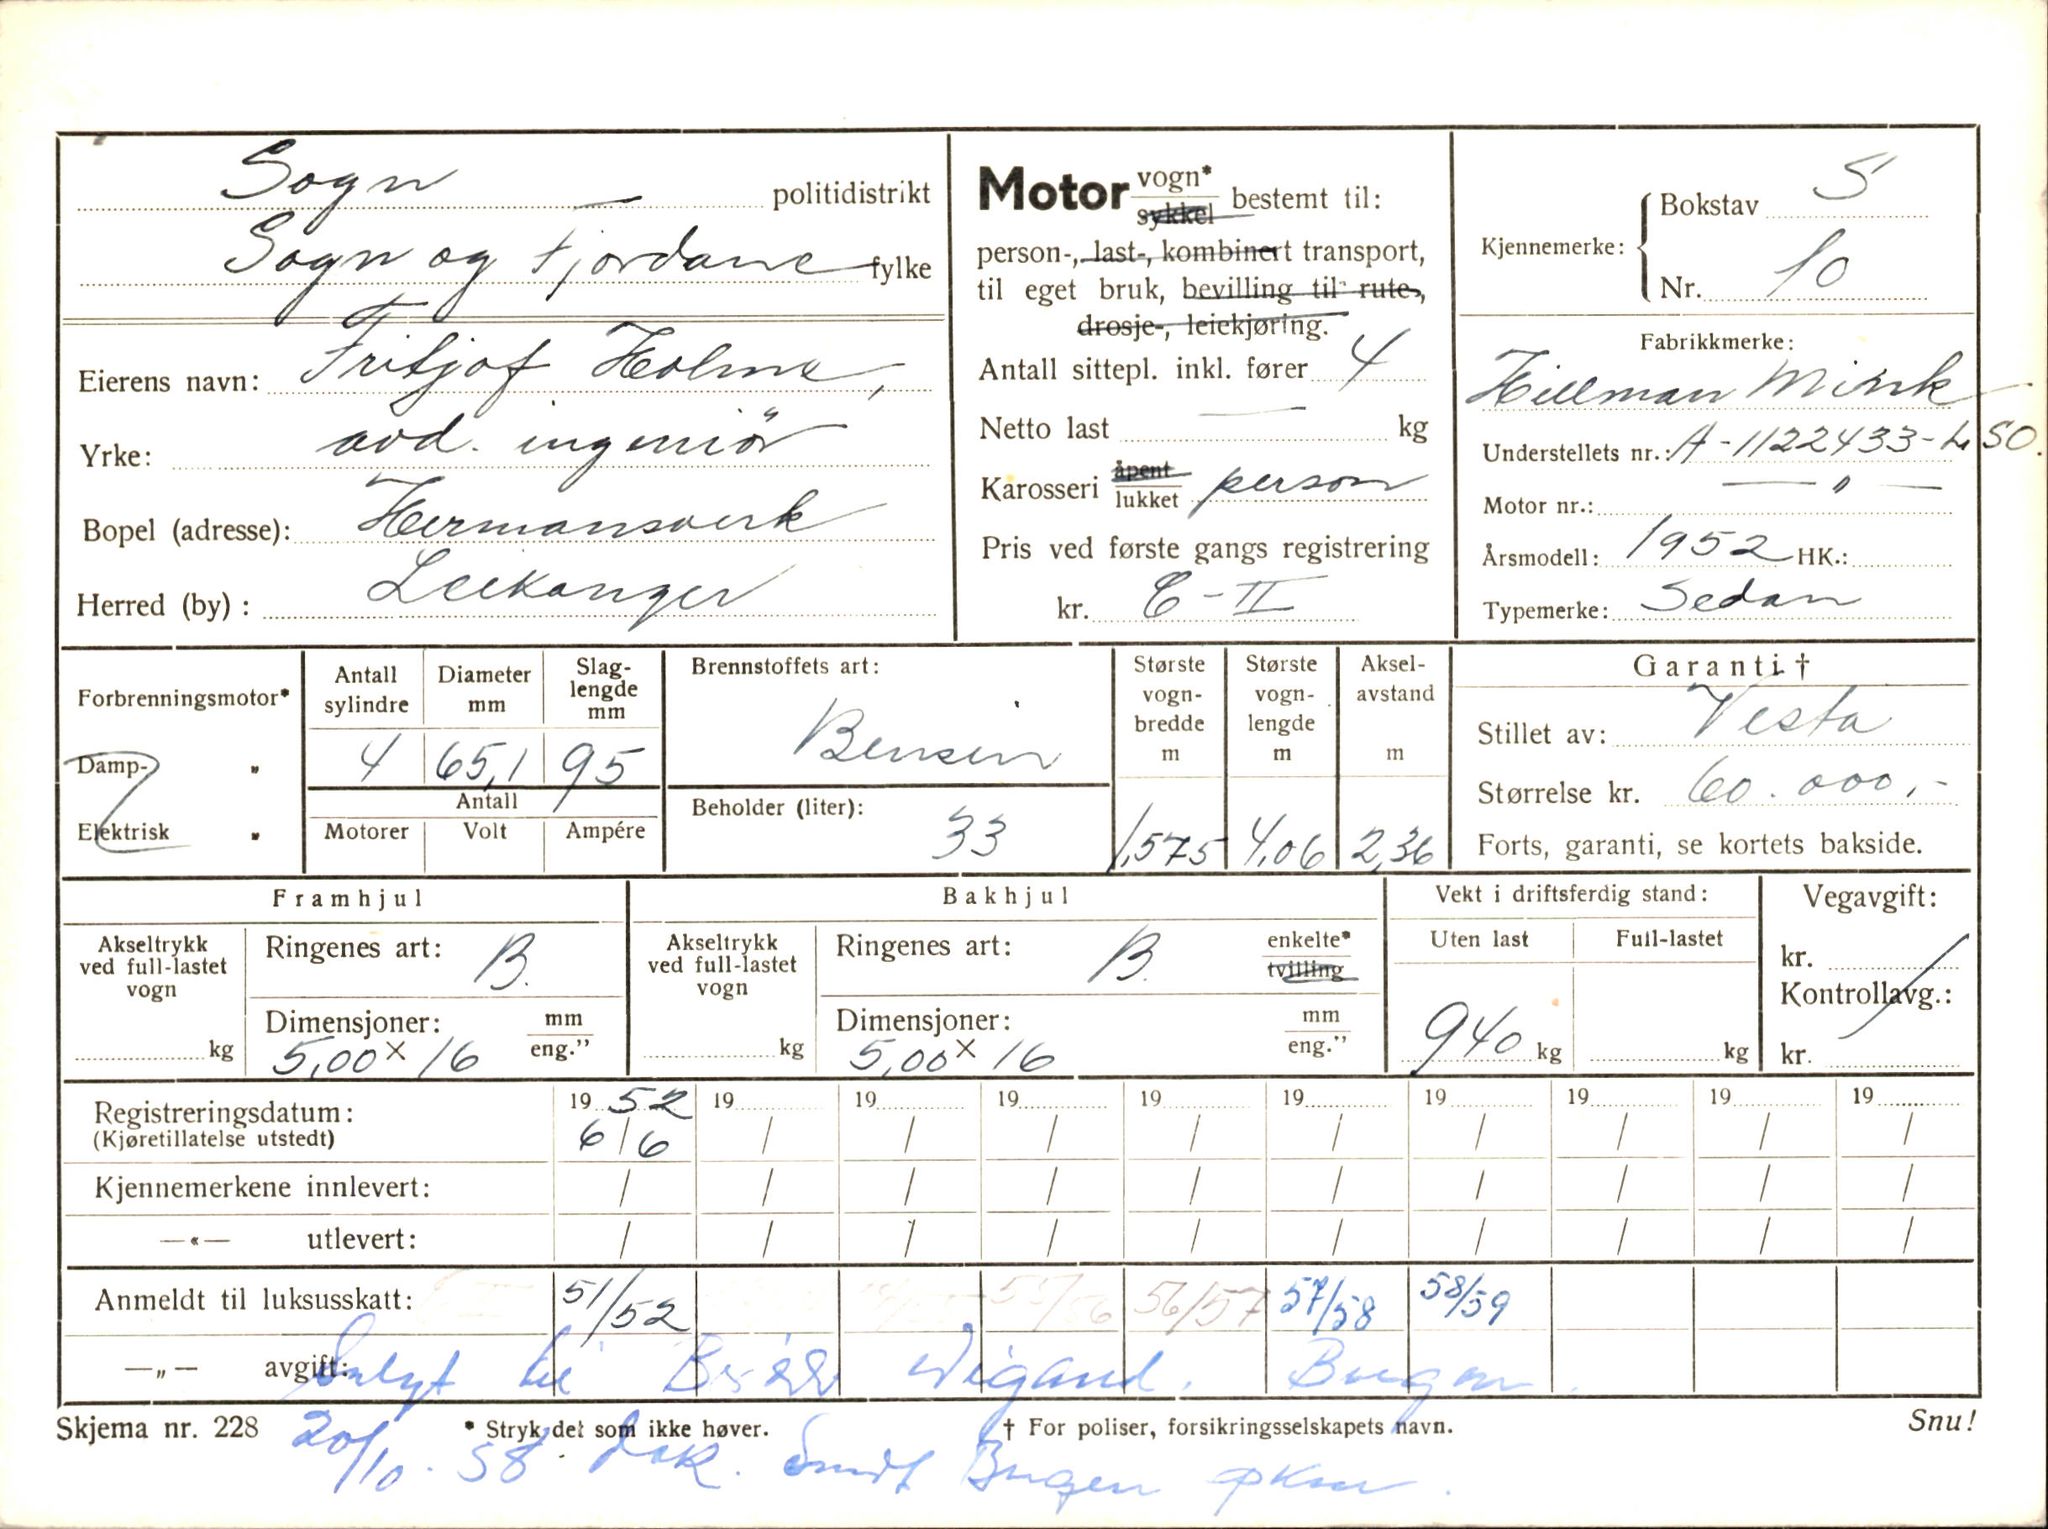 Sogn politidistrikt
Sogn og Fjordane fylke
Eierens navn: Fritjof Holme,
Yrke: avd. ingeniör
Bopel (adresse): Hermansverk
Herred (by): Leikanger
Motor vogn* sykkel bestemt til:
person-, last-, kombinert transport,
til eget bruk, bevilling til rute-,
drosje-, leiekjøring.
Antall sittepl. inkl. fører 4
Netto last — kg
Karosseri åpent lukket person
Pris ved første gangs registrering
kr. C-II
Kjennemerke: Bokstav S
Nr. 10
Fabrikkmerke:
Hillman Mink
Understellets nr.: A-1122433-LSO.
Motor nr.: — " —
Årsmodell: 1952 HK.:
Typemerke: Sedan
Forbrenningsmotor*
Damp- "
Elektrisk "
Antall sylindre Diameter mm Slag-lengde mm
4 65,1 95
Antall
Motorer Volt Ampére
Brennstoffets art:
Bensin
Beholder (liter):
33
Største vogn-bredde m Største vogn-lengde m Aksel-avstand m
1,575 4,06 2,36
Garanti †
Stillet av: Vesta
Størrelse kr. 60.000,-
Forts, garanti, se kortets bakside.
Framhjul
Akseltrykk ved full-lastet vogn
kg
Ringenes art: B.
Dimensjoner: mm
5,00 x 16 eng."
Bakhjul
Akseltrykk ved full-lastet vogn
kg
Ringenes art: B. enkelte* tvilling
Dimensjoner: mm
5,00 x 16 eng."
Vekt i driftsferdig stand:
Uten last Full-lastet
940 kg kg
Vegavgift:
kr.
Kontrollavg.:
kr.
Registreringsdatum: 1952 19 19 19 19 19 19 19 19 19
(Kjøretillatelse utstedt) 6/6 / / / / / / / / /
Kjennemerkene innlevert: / / / / / / / / / /
—«— utlevert: / / / / / / / / / /
Anmeldt til luksusskatt: 51/52 55/56 56/57 57/58 58/59
—„— avgift: Solgt til Wigand. Bergen.
Skjema nr. 228 * Stryk det som ikke høver. † For poliser, forsikringsselskapets navn. Snu!
20/10-58. Bergen